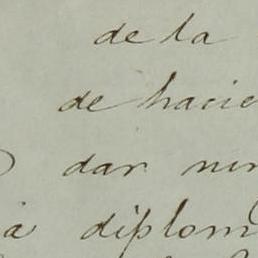 de la
de hacie
dar nin
a diplom